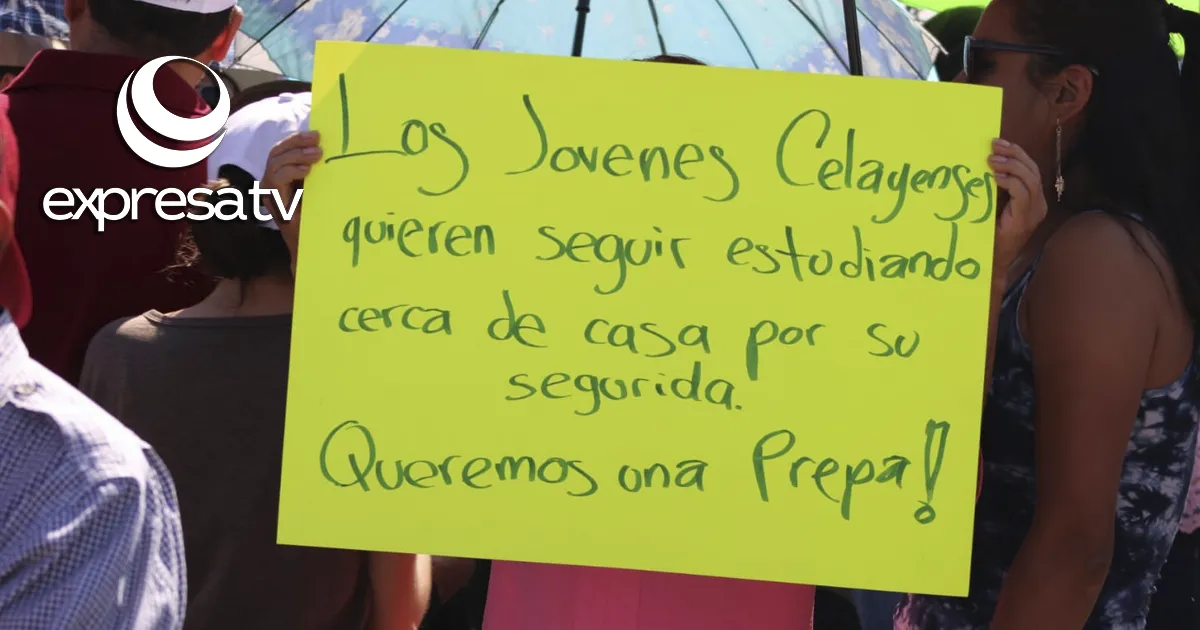 expresatv
Los Jovenes Celayenses
quieren seguir estudiando
cerca de casa por su
segurida.
Queremos una Prepa!